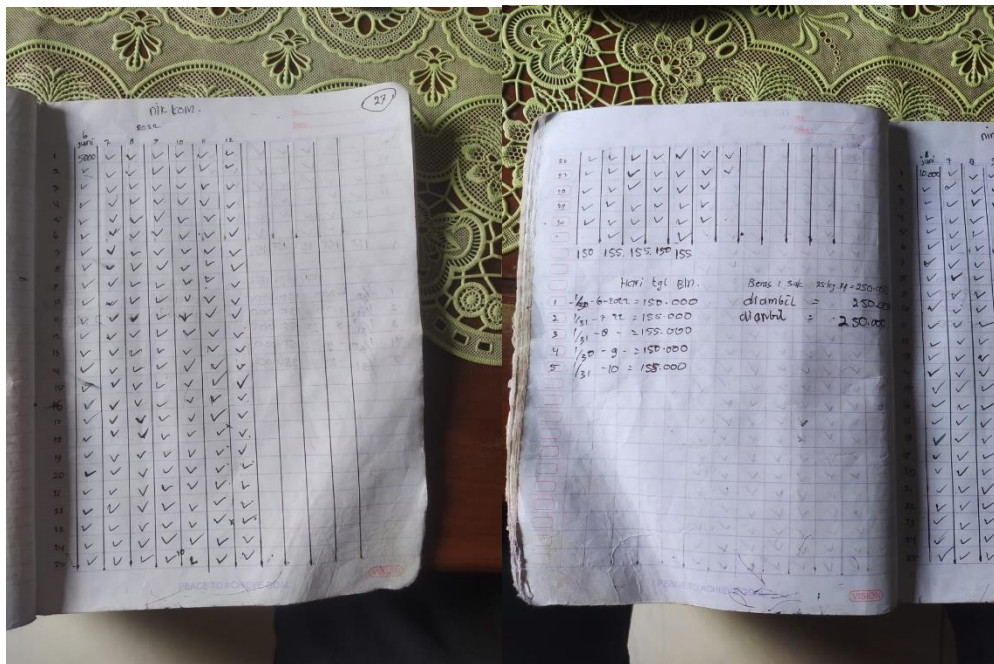 27
nik kom.
2022
6
juni 7 8 9 10 11 12
5000
1
2
3
4
5
6
7
8
9
12
13
14
15
16
17
18
19
20
21
22
23
24
25
PEACE TO ACHIEVE
VISION
26
27
28
29
30
150 155. 155. 150 155
Hari tgl Bln.
1 -1/30-6-2022 = 150.000
2 1/31 -7-22 = 155.000
3 1/31 -8- = 155.000
4 1/30 -9- = 150.000
5 1/31 -10 = 155.000
Beras 1 sak 25 kg = 250.000
diambil = 250.000
diambil = 250.000
PEACE TO ACHIEVE
VISION
juni 7 8
10.000